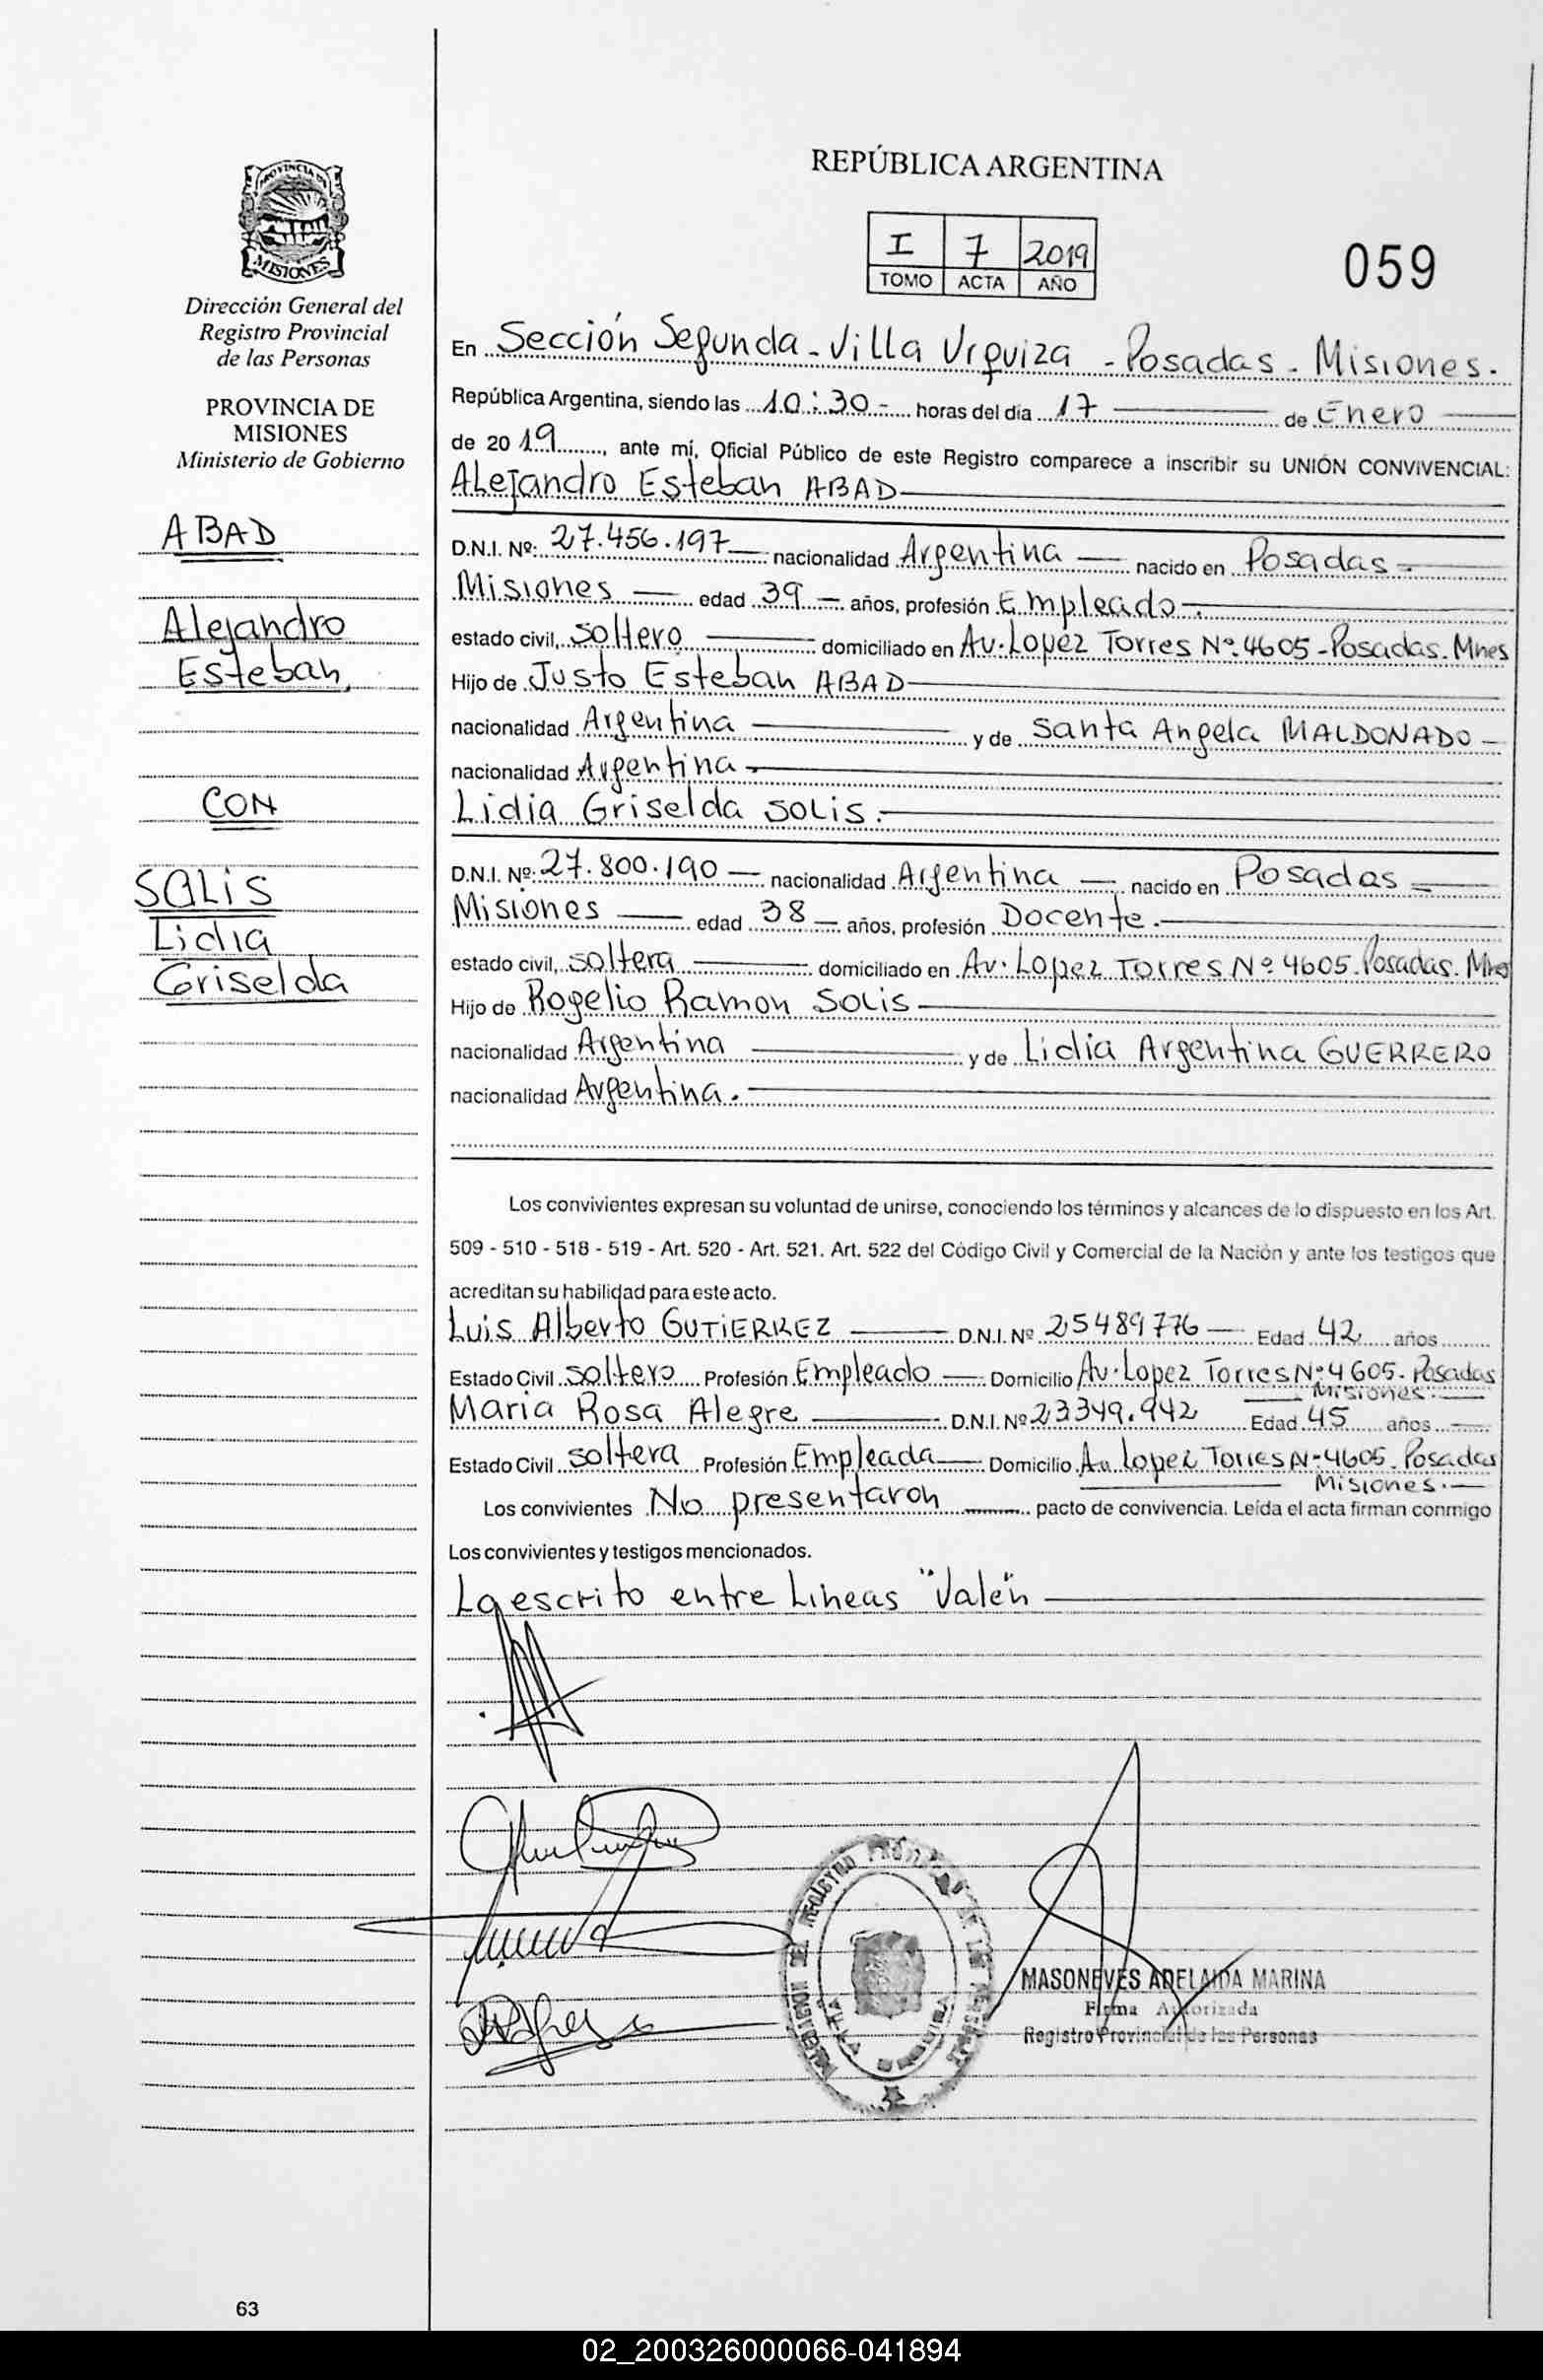 PROVINCIA DE
MISIONES
Dirección General del
Registro Provincial
de las Personas
PROVINCIA DE
MISIONES
Ministerio de Gobierno
ABAD
Alejandro
Esteban,
CON
SOLIS
Lidia
Griselda
63
REPÚBLICA ARGENTINA
I 7 2019
TOMO ACTA AÑO
059
En Sección Segunda - Villa Urquiza - Posadas - Misiones.
República Argentina, siendo las 10:30 - horas del día 17 de Enero
de 2019, ante mí, Oficial Público de este Registro comparece a inscribir su UNIÓN CONVIVENCIAL:
Alejandro Esteban ABAD
D.N.I. Nº: 27.456.197 nacionalidad Argentina nacido en Posadas -
Misiones edad 39 años, profesión Empleado.
estado civil, soltero domiciliado en Av. Lopez Torres Nº 4605 - Posadas. Mnes
Hijo de Justo Esteban ABAD
nacionalidad Argentina y de Santa Angela MALDONADO
nacionalidad Argentina.
Lidia Griselda SOLIS.
D.N.I. Nº: 27.800.190 nacionalidad Argentina nacido en Posadas
Misiones edad 38 años, profesión Docente.
estado civil, soltera domiciliado en Av. Lopez Torres Nº 4605. Posadas. Mnes
Hijo de Rogelio Ramon SOLIS
nacionalidad Argentina y de Lidia Argentina GUERRERO
nacionalidad Argentina.
Los convivientes expresan su voluntad de unirse, conociendo los términos y alcances de lo dispuesto en los Art.
509 - 510 - 518 - 519 - Art. 520 - Art. 521. Art. 522 del Código Civil y Comercial de la Nación y ante los testigos que
acreditan su habilidad para este acto.
Luis Alberto GUTIERREZ D.N.I. Nº 25489776 Edad 42 años
Estado Civil soltero Profesión Empleado Domicilio Av. Lopez Torres Nº 4605. Posadas
Misiones.
Maria Rosa Alegre D.N.I. Nº 23349.942 Edad 45 años
Estado Civil soltera Profesión Empleada Domicilio Av. Lopez Torres Nº 4605. Posadas
Misiones.
Los convivientes No presentaron pacto de convivencia. Leída el acta firman conmigo
Los convivientes y testigos mencionados.
Lo escrito entre Lineas "Valen"
MASONEVES ADELAIDA MARINA
Firma Autorizada
Registro Provincial de las Personas
02_200326000066-041894